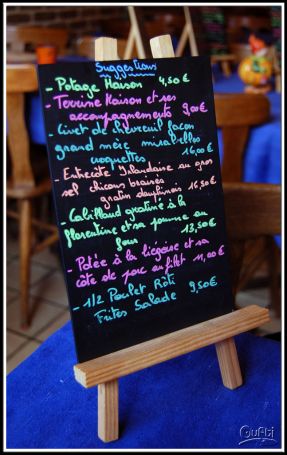 Suggestions
- Potage Maison 4,50 €
- Terrine Maison et ses
accompagnements 9,00 €
- Civet de chevreuil façon
grand mère mirabelles
croquettes 16,00 €
- Entrecôte Irlandaise au gros
sel chicons braisés
gratin dauphinois 16,50 €
- Cabillaud gratiné à la
florentine et sa pomme au
four 13,50 €
- Potée à la liégeoise et sa
côte de porc au filet 11,00 €
- 1/2 Poulet Rôti
Frites Salade 9,50 €